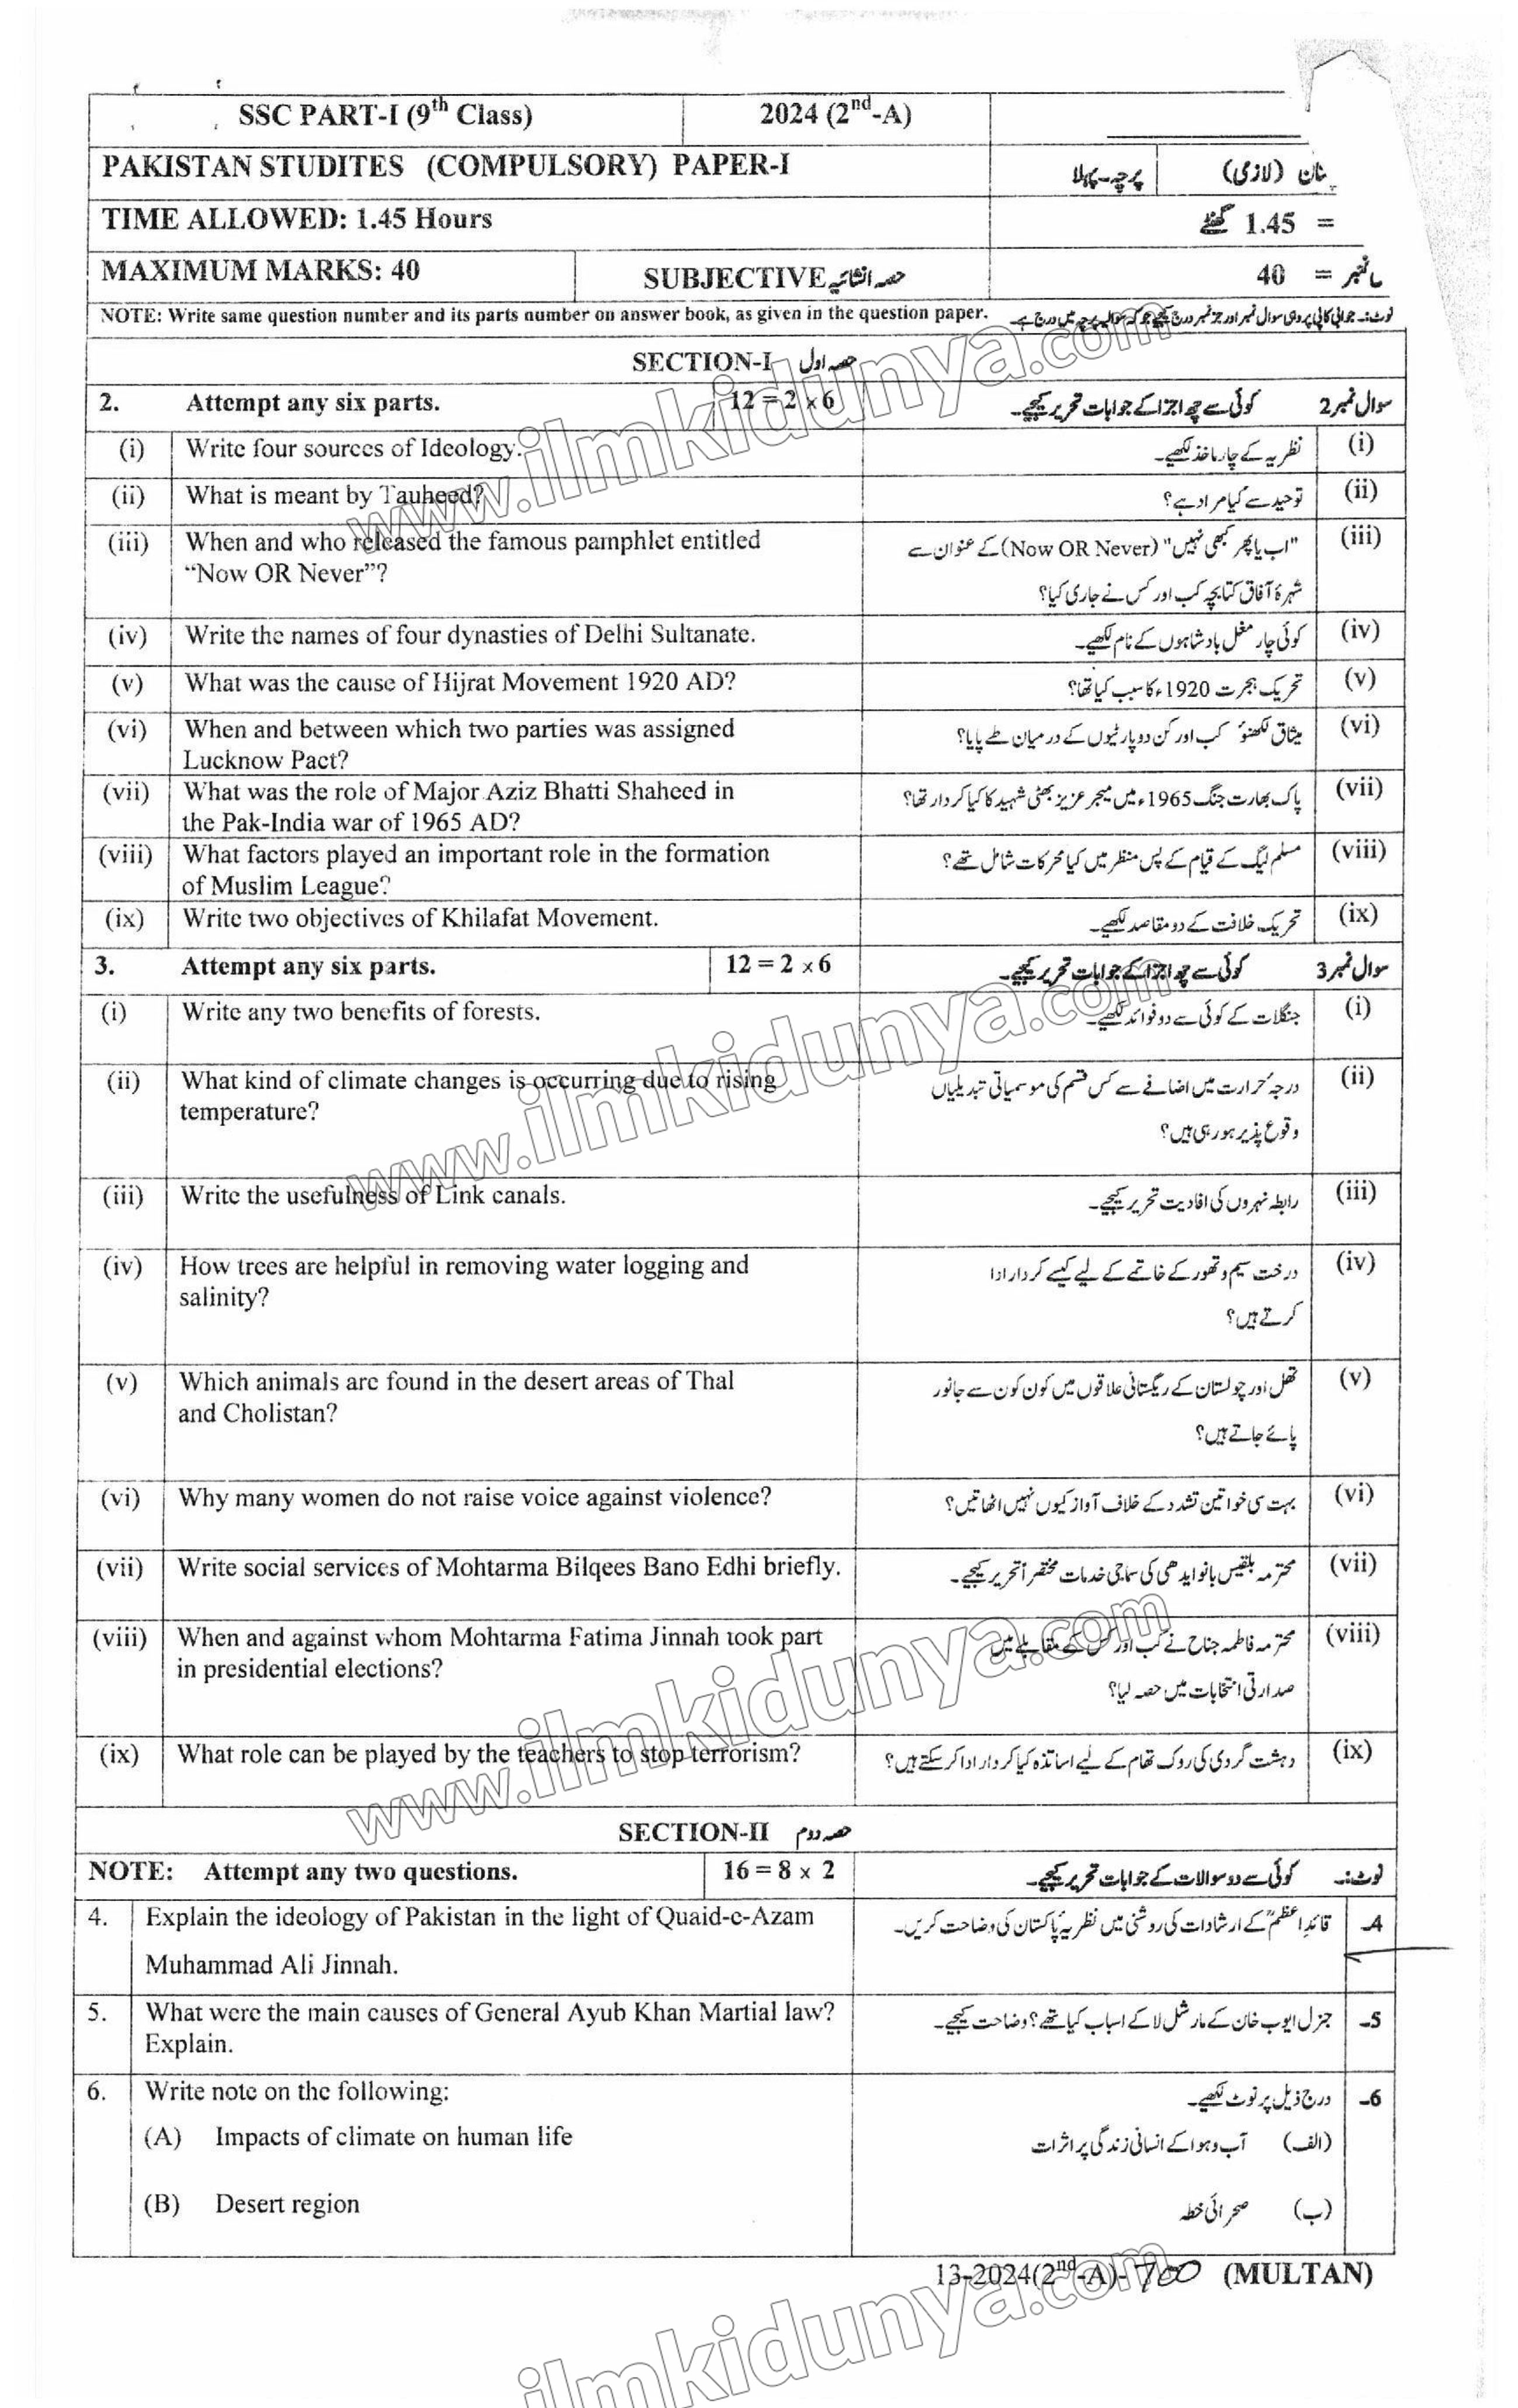 SSC PART-I (9th Class) 2024 (2nd-A)
PAKISTAN STUDITES (COMPULSORY) PAPER-I پرچہ-پہلا (لازمی)
TIME ALLOWED: 1.45 Hours = 1.45 گھنٹے
MAXIMUM MARKS: 40 SUBJECTIVE حصہ انشائیہ = 40
NOTE: Write same question number and its parts number on answer book, as given in the question paper. نوٹ:۔ جوابی کاپی پر وہی سوال نمبر اور جز نمبر درج کیجیے جو کہ سوالیہ پرچہ میں درج ہے۔
SECTION-I حصہ اول
2. Attempt any six parts. 12 = 2 × 6 کوئی سے چھ اجزا کے جوابات تحریر کیجیے۔ سوال نمبر 2
(i) Write four sources of Ideology. نظریہ کے چار ماخذ لکھیے۔ (i)
(ii) What is meant by Tauheed? توحید سے کیا مراد ہے؟ (ii)
(iii) When and who released the famous pamphlet entitled "اب یا پھر کبھی نہیں" (Now OR Never) کے عنوان سے (iii)
“Now OR Never”? شہرۂ آفاق کتابچہ کب اور کس نے جاری کیا؟
(iv) Write the names of four dynasties of Delhi Sultanate. کوئی چار مغل بادشاہوں کے نام لکھیے۔ (iv)
(v) What was the cause of Hijrat Movement 1920 AD? تحریک ہجرت 1920ء کا سبب کیا تھا؟ (v)
(vi) When and between which two parties was assigned میثاق لکھنؤ کب اور کن دو پارٹیوں کے درمیان طے پایا؟ (vi)
Lucknow Pact?
(vii) What was the role of Major Aziz Bhatti Shaheed in پاک بھارت جنگ 1965ء میں میجر عزیز بھٹی شہید کا کیا کردار تھا؟ (vii)
the Pak-India war of 1965 AD?
(viii) What factors played an important role in the formation مسلم لیگ کے قیام کے پس منظر میں کیا محرکات شامل تھے؟ (viii)
of Muslim League?
(ix) Write two objectives of Khilafat Movement. تحریک خلافت کے دو مقاصد لکھیے۔ (ix)
3. Attempt any six parts. 12 = 2 × 6 کوئی سے چھ اجزا کے جوابات تحریر کیجیے۔ سوال نمبر 3
(i) Write any two benefits of forests. جنگلات کے کوئی سے دو فوائد لکھیے۔ (i)
(ii) What kind of climate changes is occurring due to rising درجہ حرارت میں اضافے سے کس قسم کی موسمیاتی تبدیلیاں (ii)
temperature? وقوع پذیر ہو رہی ہیں؟
(iii) Write the usefulness of Link canals. رابطہ نہروں کی افادیت تحریر کیجیے۔ (iii)
(iv) How trees are helpful in removing water logging and درخت سیم و تھور کے خاتمے کے لیے کیسے کردار ادا (iv)
salinity? کرتے ہیں؟
(v) Which animals are found in the desert areas of Thal تھل اور چولستان کے ریگستانی علاقوں میں کون کون سے جانور (v)
and Cholistan? پائے جاتے ہیں؟
(vi) Why many women do not raise voice against violence? بہت سی خواتین تشدد کے خلاف آواز کیوں نہیں اٹھاتیں؟ (vi)
(vii) Write social services of Mohtarma Bilqees Bano Edhi briefly. محترمہ بلقیس بانو ایدھی کی سماجی خدمات مختصراً تحریر کیجیے۔ (vii)
(viii) When and against whom Mohtarma Fatima Jinnah took part محترمہ فاطمہ جناح نے کب اور کس کے مقابلے میں (viii)
in presidential elections? صدارتی انتخابات میں حصہ لیا؟
(ix) What role can be played by the teachers to stop terrorism? دہشت گردی کی روک تھام کے لیے اساتذہ کیا کردار ادا کر سکتے ہیں؟ (ix)
SECTION-II حصہ دوم
NOTE: Attempt any two questions. 16 = 8 × 2 کوئی سے دو سوالات کے جوابات تحریر کیجیے۔ نوٹ:۔
4. Explain the ideology of Pakistan in the light of Quaid-e-Azam قائداعظمؒ کے ارشادات کی روشنی میں نظریۂ پاکستان کی وضاحت کریں۔ 4۔
Muhammad Ali Jinnah.
5. What were the main causes of General Ayub Khan Martial law? جنرل ایوب خان کے مارشل لا کے اسباب کیا تھے؟ وضاحت کیجیے۔ 5۔
Explain.
6. Write note on the following: درج ذیل پر نوٹ لکھیے۔ 6۔
(A) Impacts of climate on human life (الف) آب و ہوا کے انسانی زندگی پر اثرات
(B) Desert region (ب) صحرائی خطہ
13-2024(2nd-A)-700 (MULTAN)
www.ilmkidunya.com
www.ilmkidunya.com
www.ilmkidunya.com
ilmkidunya.com